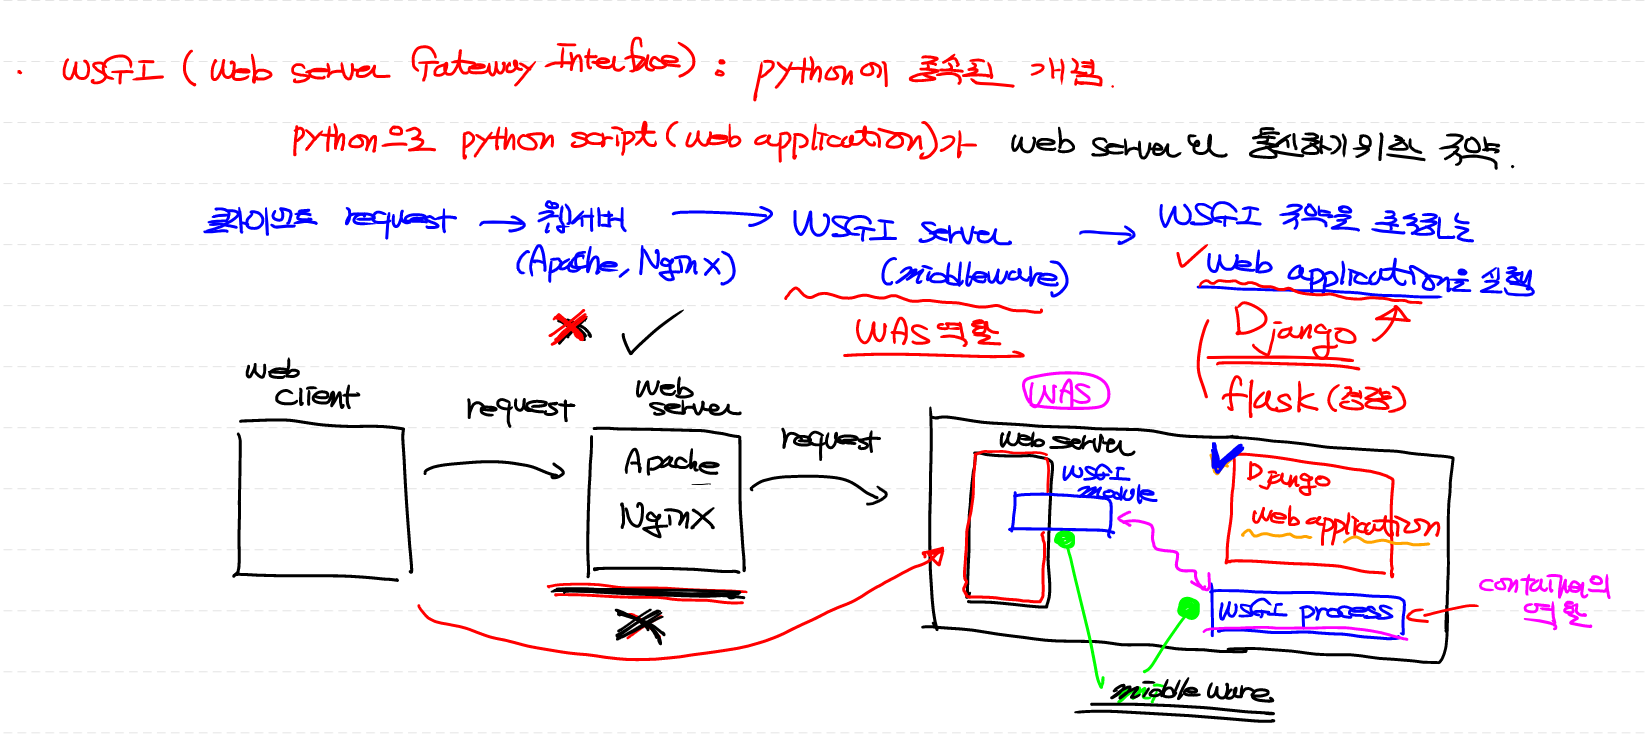 · WSGI (Web server Gateway Interface) : python에 종속된 개념.
python으로 python script (web application)가 web server와 통신하기 위한 규약.
클라이언트 request → 웹서버 → WSGI server → WSGI 규약을 준수하는
(Apache, Nginx) (middleware) ✓ web application을 실행
WAS 역할 Django
flask (경량)
web client
request
web server
Apache
Nginx
request
WAS
web server
WSGI module
Django
web application
WSGI process
container의 역할
middleware